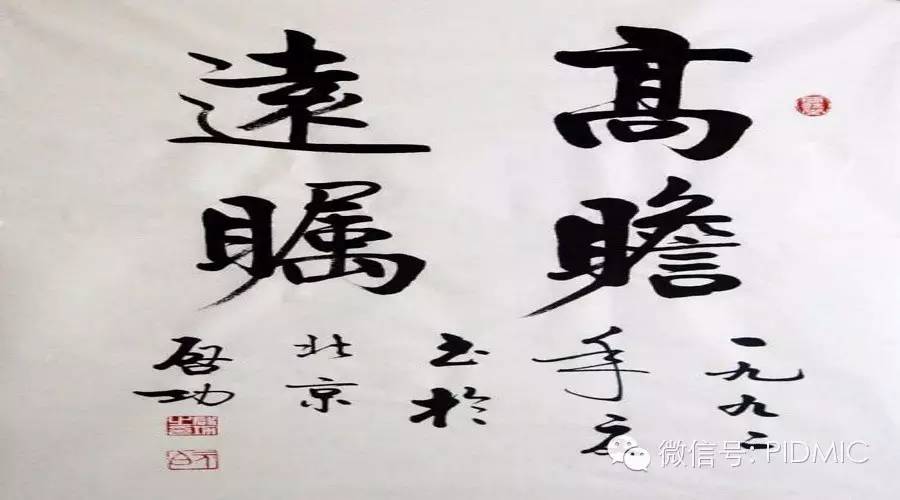 髙瞻
遠瞩
一九九二
年
书於
北京
启功
微信号: PIDMIC